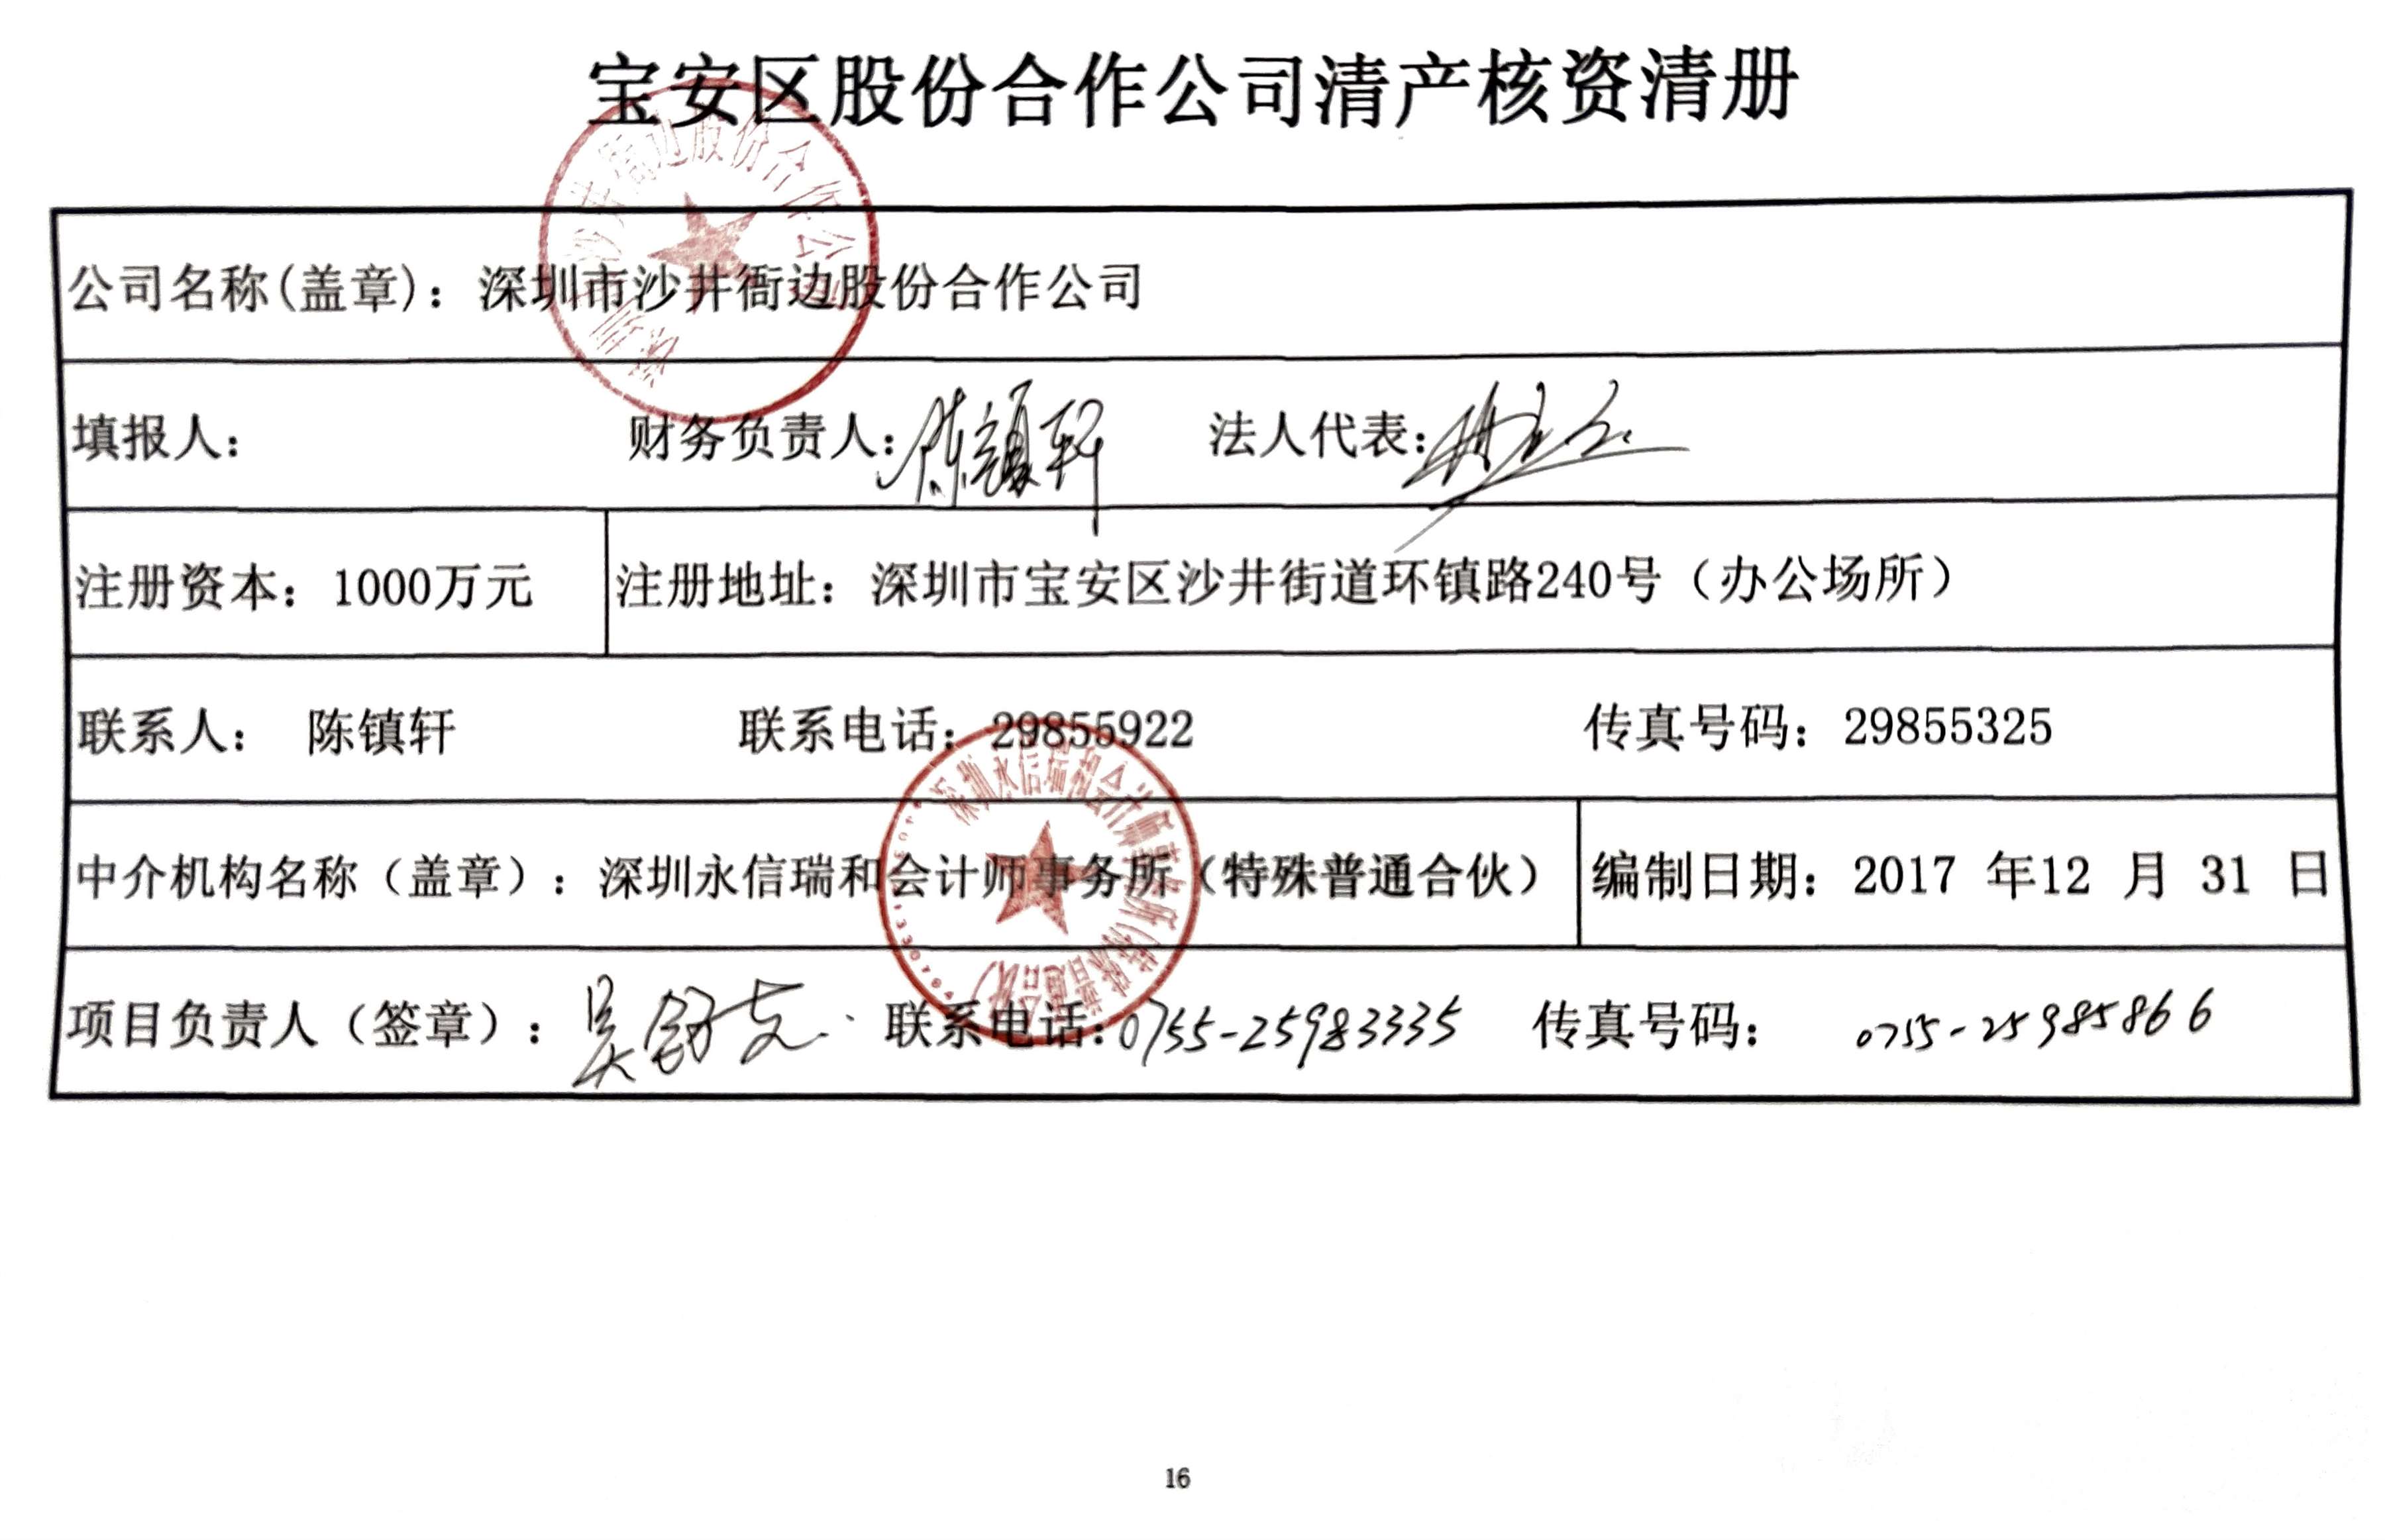 宝安区股份合作公司清产核资清册
公司名称(盖章)：深圳市沙井衙边股份合作公司
填报人： 财务负责人：陈镇轩 法人代表：
注册资本：1000万元 注册地址：深圳市宝安区沙井街道环镇路240号（办公场所）
联系人： 陈镇轩 联系电话：29855922 传真号码：29855325
中介机构名称（盖章）：深圳永信瑞和会计师事务所（特殊普通合伙） 编制日期：2017 年12 月 31 日
项目负责人（签章）： 联系电话：0755-25983335 传真号码： 0755-25985866
深圳市沙井衙边股份合作公司
深圳永信瑞和会计师事务所(特殊普通合伙)
16